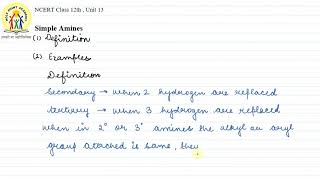 NCERT Class 12th , Unit 13
Simple Amines
(1) Definition
(2) Examples
Definition
Secondary → when 2 hydrogen are replaced
tertiary → when 3 hydrogen are replaced
when in 2° or 3° amines the alkyl or aryl
group attached is same, they